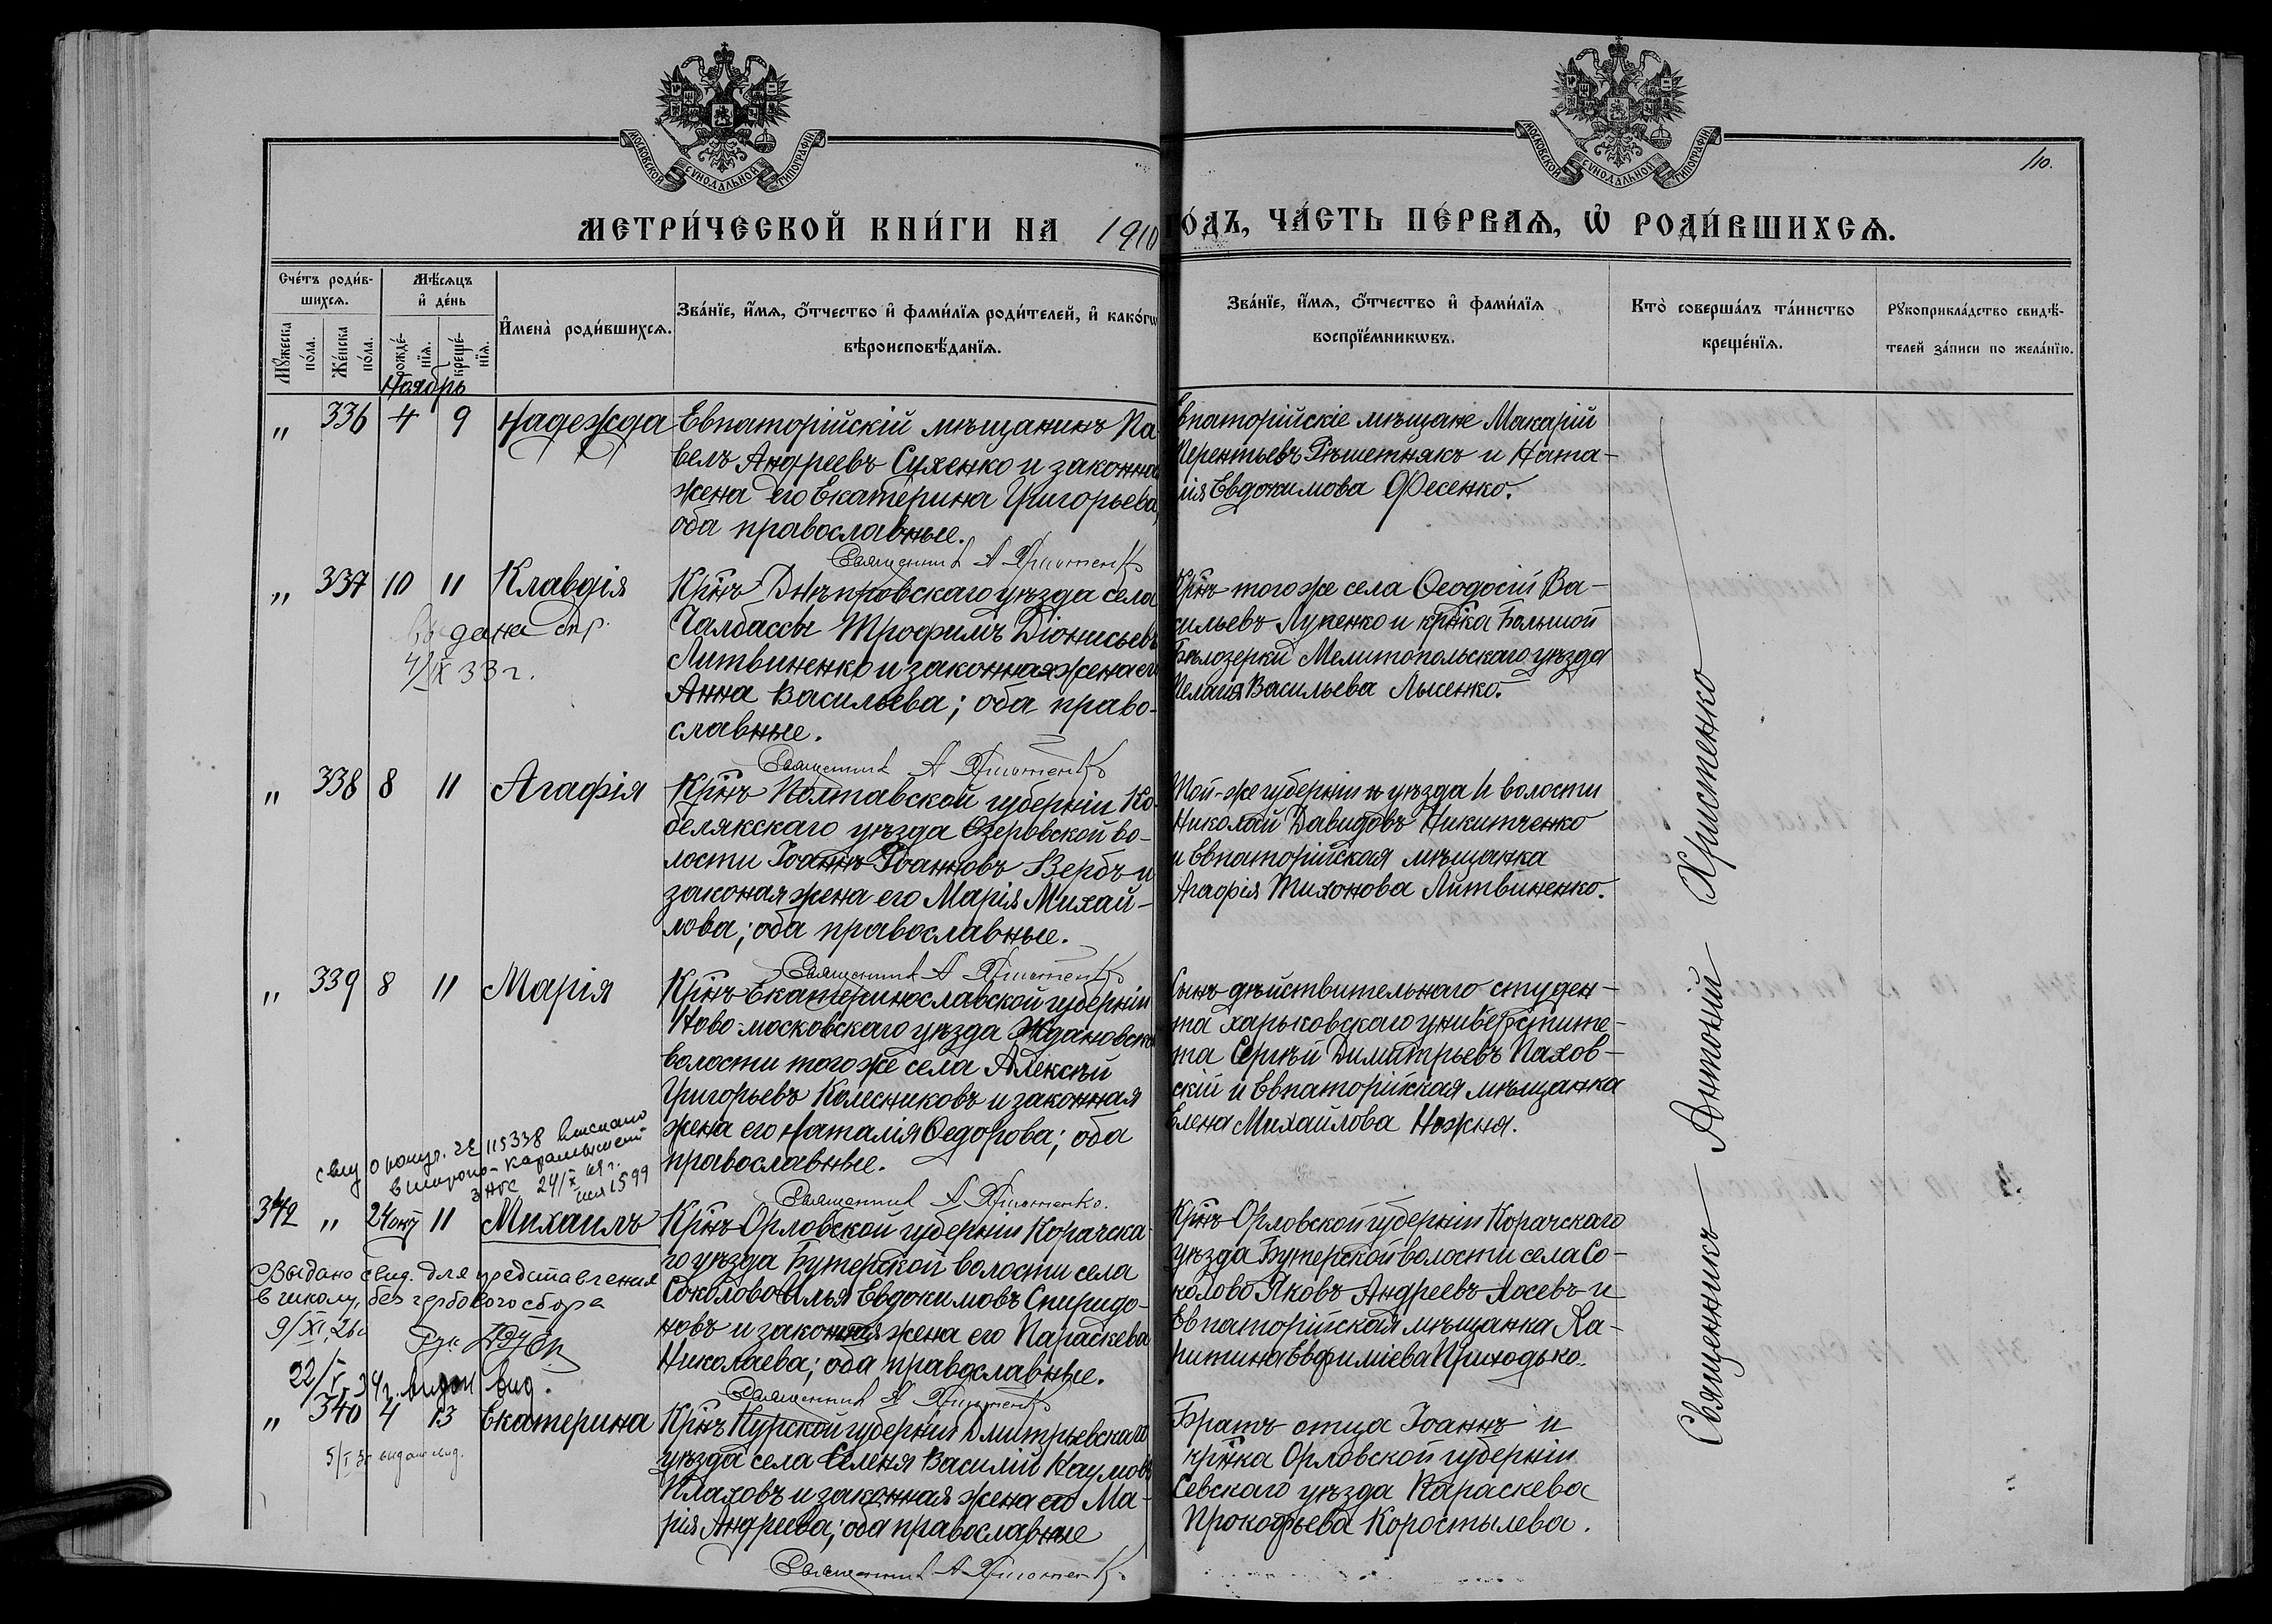 МОСКОВСКОЙ СѴНОДАЛЬНОЙ ТИПОГРАФІИ
МОСКОВСКОЙ СѴНОДАЛЬНОЙ ТИПОГРАФІИ
110.
МЕТРИ́ЧЕСКОЙ КНИ́ГИ НА 1910 ГО́ДЪ, ЧА́СТЬ ПЕ́РВАѦ, Ѡ҆ РОДИ́ВШИХСѦ.
Сче́тъ роди́в-
шихсѧ.
Мꙋ́жеска по́ла.
Же́нска по́ла.
Мѣ́сѧцъ
и҆ де́нь
рожде́-
нїѧ.
креще́-
нїѧ.
И҆мена̀ роди́вшихсѧ.
Зва́нїе, и҆́мѧ, ѻ҆́тчество и҆ фами́лїѧ роди́телей, и҆ како́гѡ
вѣроисповѣ́данїѧ.
Зва́нїе, и҆́мѧ, ѻ҆́тчество и҆ фами́лїѧ
воспрїе́мникѡвъ.
Кто̀ соверша́лъ та́инство
креще́нїѧ.
Рꙋкоприкла́дство свидѣ́-
телей за́писи по жела́нїю.
Ноябрь
" 336 4 9 Надежда
Евпаторійскій мѣщанинъ Па-
велъ Андреевъ Сухенко и законная
жена его Екатерина Григорьева,
оба православные.
Священник А Христенко
Евпаторійскіе мѣщане Макарій
Терентьевъ Рѣшетнякъ и Ната-
лія Евдокимова Фесенко.
" 337 10 11 Клавдія
выдана спр.
4/IX 33 г.
Крѣнъ Днѣпровскаго уѣзда села
Чалбассы Трофимъ Діонисьевъ
Литвиненко и законная жена его
Анна Васильева; оба право-
славные.
Священник А Христенко
Крѣнъ того же села Ѳеодосій Ва-
сильевъ Лупенко и крѣнка Большой
Бѣлозерки Мелитопольскаго уѣзда
Пелагія Васильева Лысенко.
" 338 8 11 Агафія
Крѣнъ Полтавской губерніи Ко-
белякскаго уѣзда Озеровской во-
лости Іоаннъ Іоанновъ Вербъ и
законая жена его Марія Михай-
лова; оба православные.
Священник А Христенко
Той-же губерніи и уѣзда и волости
Николай Давидовъ Никитченко
и Евпаторійская мѣщанка
Агафія Тихонова Литвиненко.
" 339 8 11 Марія
Крѣнъ Екатеринославской губерніи
Ново-московскаго уѣзда Ждановской
волости того же села Алексѣй
Григорьевъ Колесниковъ и законная
жена его Наталія Ѳедорова; оба
православные.
Священник А. Христенко.
Сынъ дѣйствительнаго студен-
та харьковскаго университе-
та Сергѣй Димитрьевъ Пахов-
скій и Евпаторійская мѣщанка
Елена Михайлова Ножня.
115338
342 " 24 окт 11 Михаилъ
Крѣнъ Орловской губерніи Корачска-
го уѣзда Бутерской волости села
Соколово Илья Евдокимовъ Спиридо-
новъ и законная жена его Параскева
Николаева; оба православные.
Священник А Христенко
Крѣнъ Орловской губерніи Корачскаго
уѣзда Бутерской волости села Со-
колово Яковъ Андреевъ Лосевъ и
Евпаторійская мѣщанка Ха-
ритина Евфиміева Приходько.
Выдано свид. для представления
в школу, без гербового сбора
9/XI 26 г
" 340 4 13 Екатерина
Крѣнъ Курской губерніи Дмитрьевскаго
уѣзда села Селеня Василій Наумовъ
Плаховъ и законная жена его Ма-
рія Андреева; оба православные
Священник А Христенко
Братъ отца Іоаннъ и
крѣнка Орловской губерніи
Севскаго уѣзда Параскева
Прокофьева Коростылева.
Священникъ Антоній Христенко